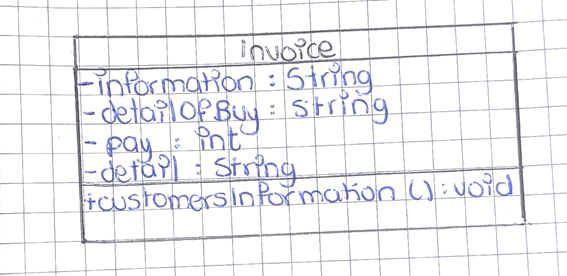 invoice
-information : String
-detailOfBuy : String
- pay : int
-detail : String
+customersinformation () : void